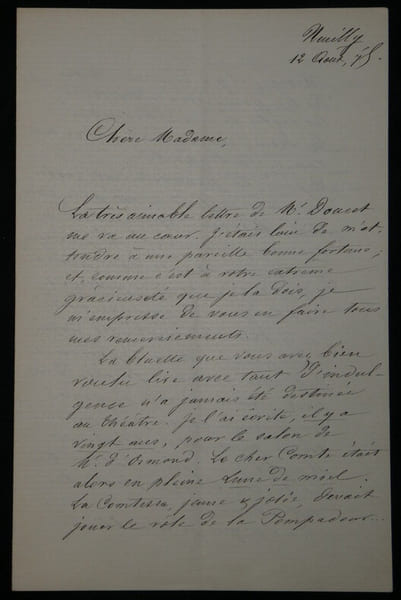 Neuilly
12 Août, 75.
Chère Madame,
La très aimable lettre de Mr. Doucet
me va au cœur. J'étais loin de m'at-
tendre à une pareille bonne fortune;
et, comme c'est à votre extrême
gracieuseté que je la dois, je
m'empresse de vous en faire tous
mes remerciements.
La bluette que vous avez bien
voulu lire avec tant d'indul-
gence n'a jamais été destinée
au théâtre. Je l'ai écrite, il y a
vingt ans, pour le salon de
Mr. d'Osmond. Le cher Comte était
alors en pleine Lune de miel.
La Comtesse, jeune & jolie, devait
jouer le rôle de la Pompadour...